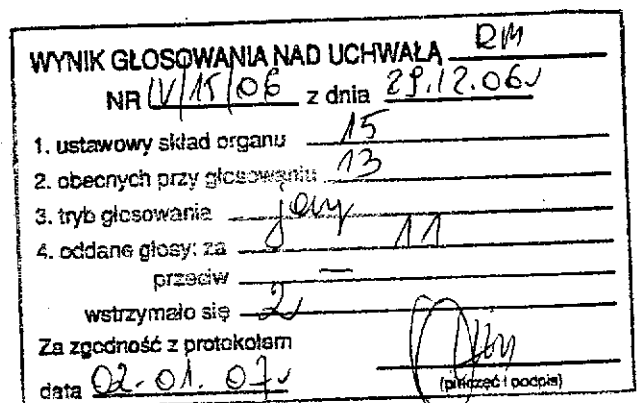 WYNIK GŁOSOWANIA NAD UCHWAŁĄ RM
NR IV/15/06 z dnia 29.12.06r
1. ustawowy skład organu 15
2. obecnych przy głosowaniu 13
3. tryb głosowania jawny
4. oddane głosy: za 11
przeciw —
wstrzymało się 2
Za zgodność z protokołem
data 02-01.07r
(pieczęć i podpis)